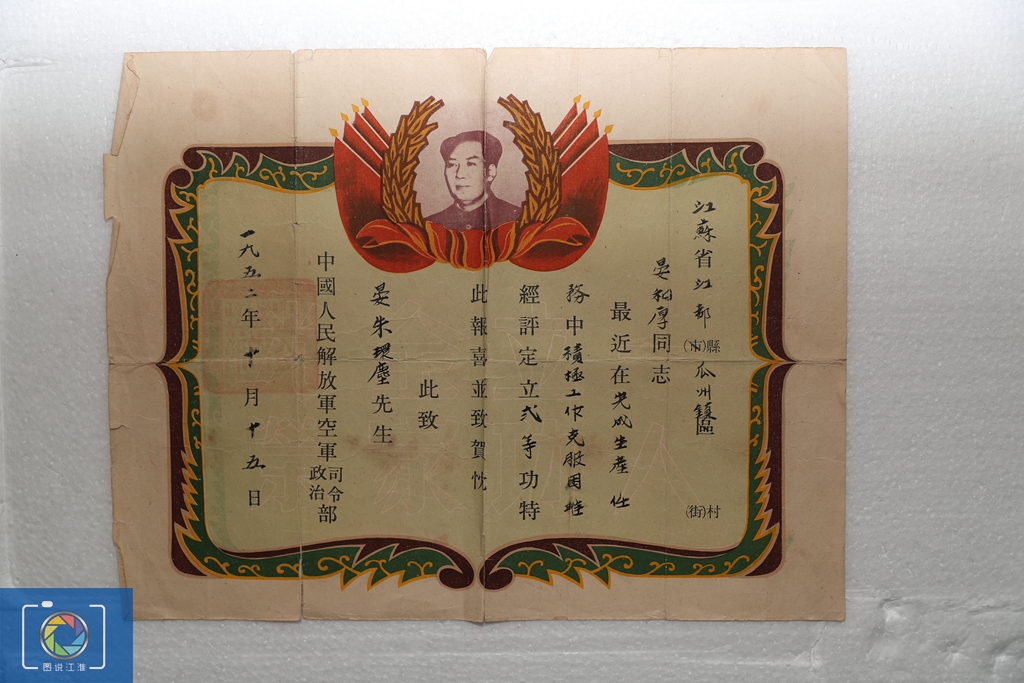 江蘇省江都縣(市)瓜州鎮區村(街)
晏和厚同志
最近在完成生產任
務中積極工作克服困難
經評定立弍等功特
此報喜並致賀忱
此致
晏朱環塵先生
中國人民解放軍空軍司令政治部
一九五二年十月十五日
图说江淮